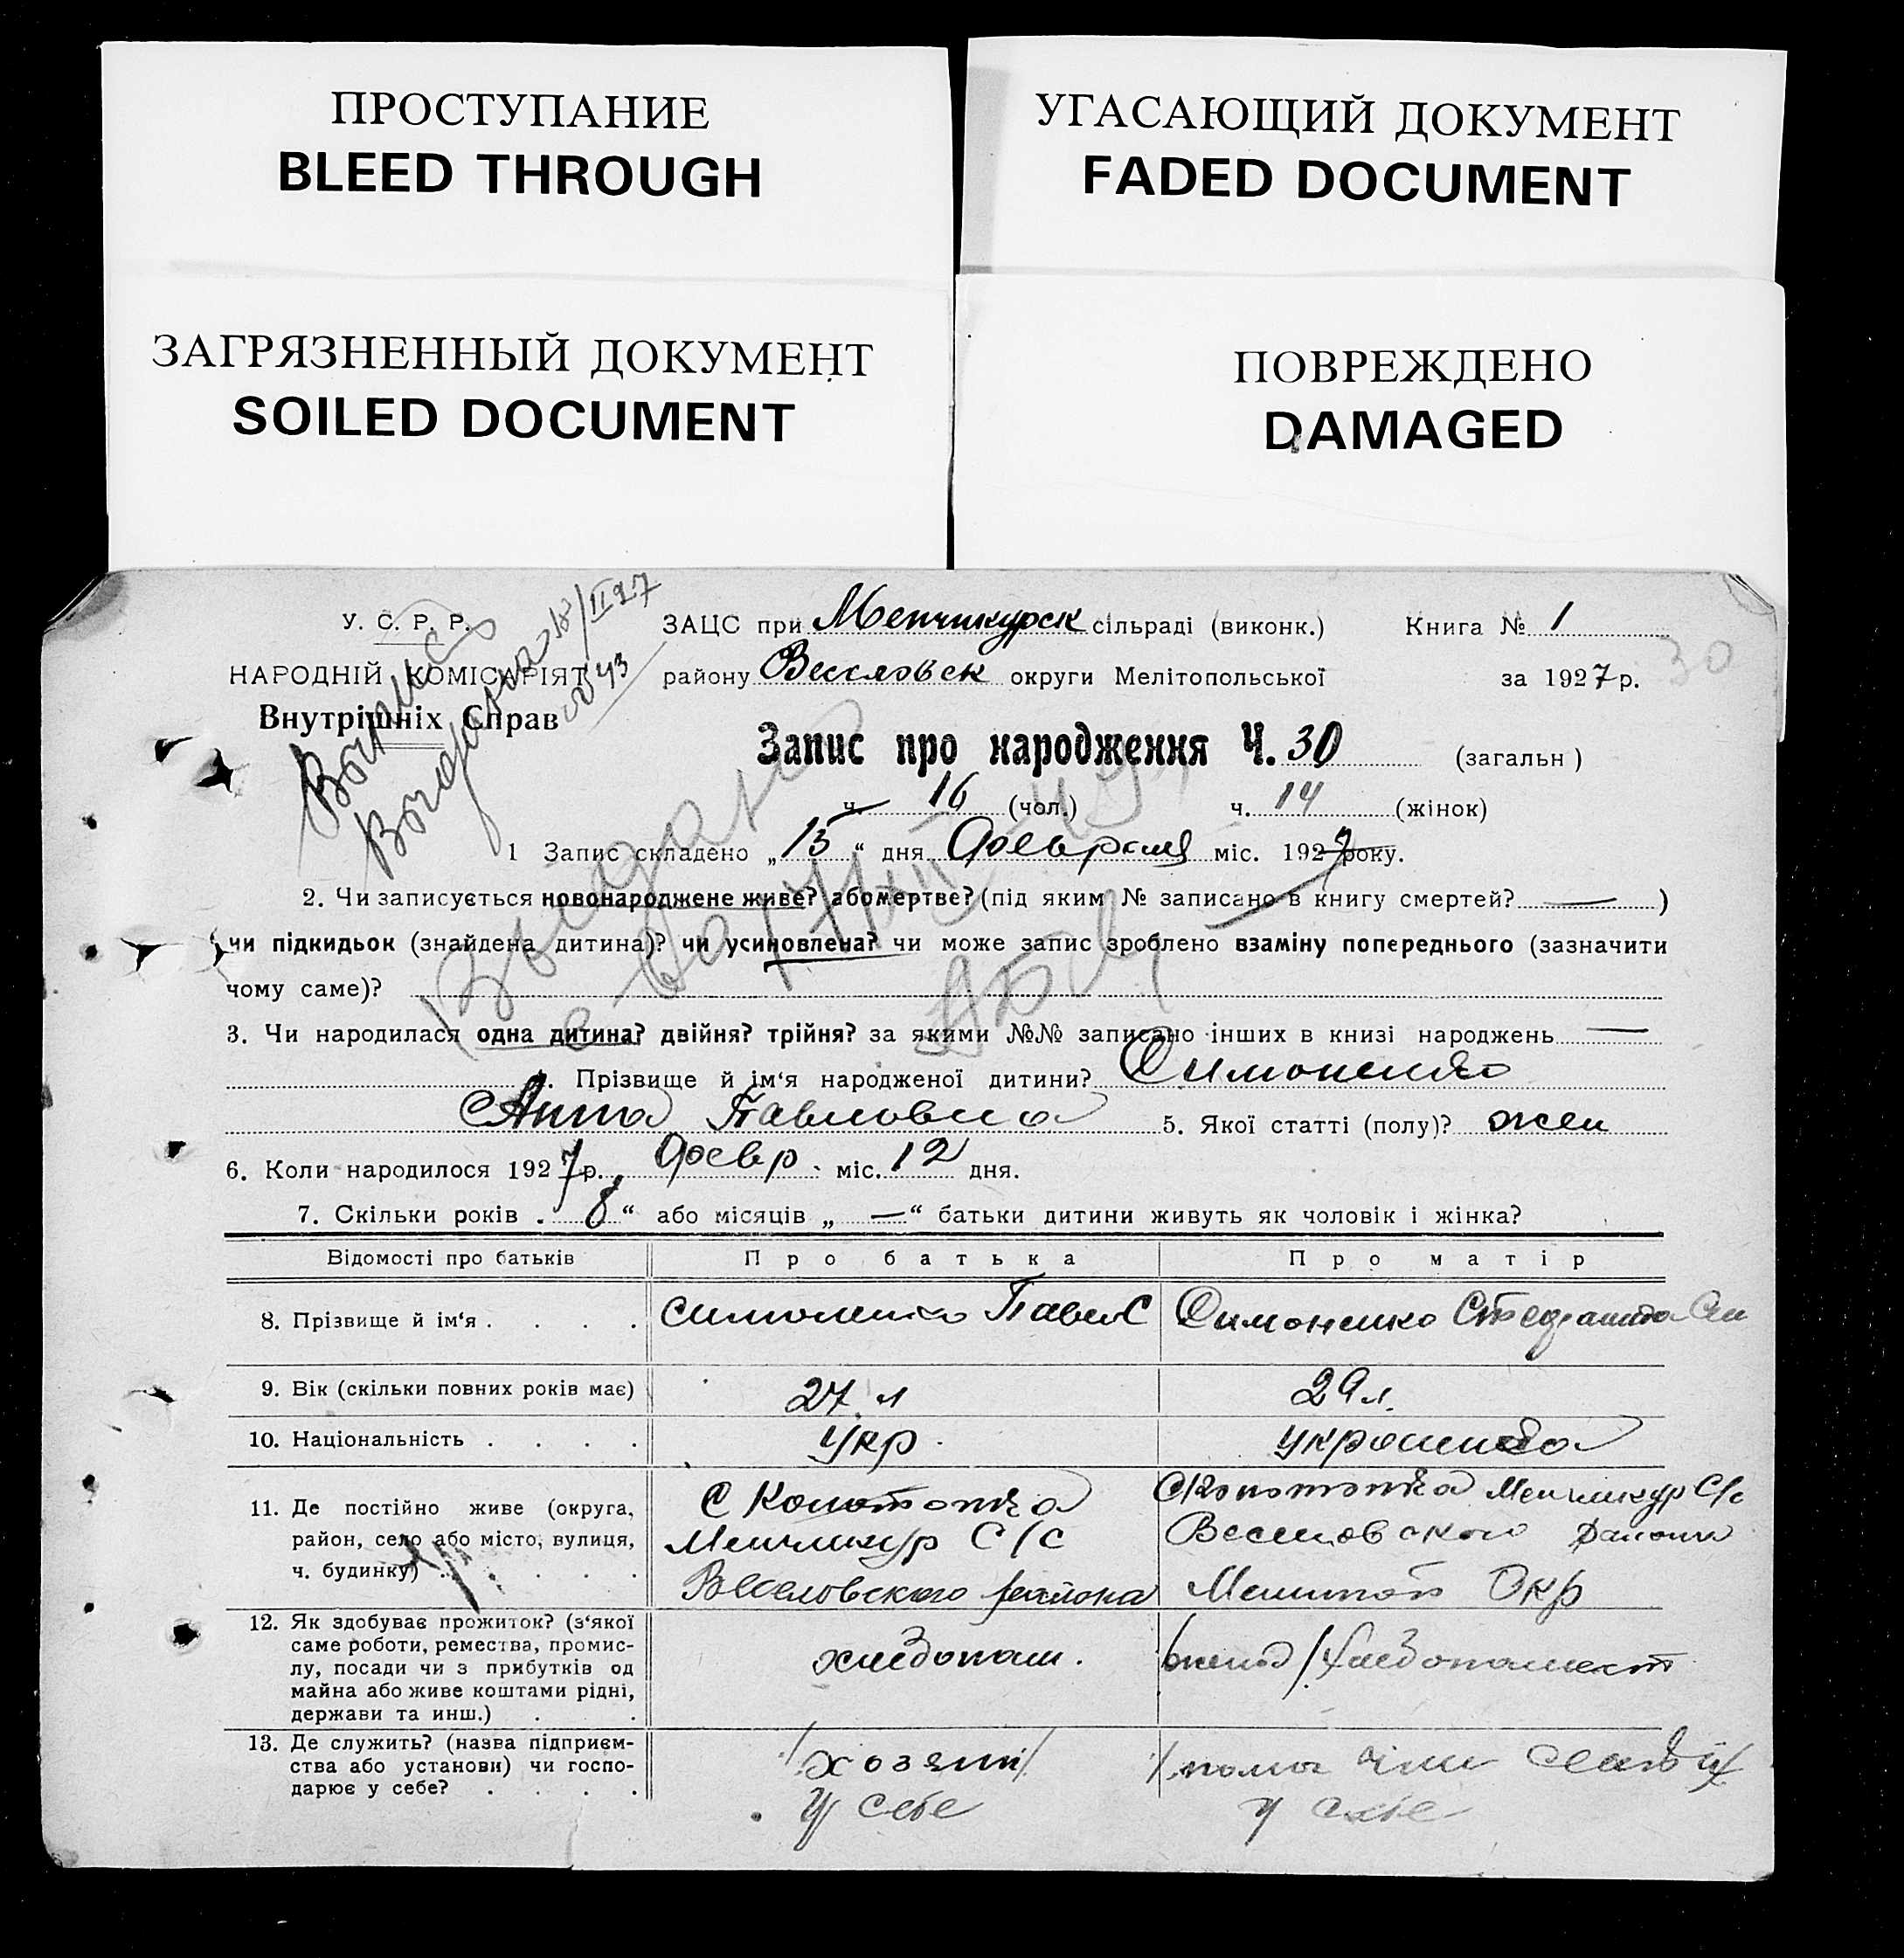 ПРОСТУПАНИЕ
BLEED THROUGH
УГАСАЮЩИЙ ДОКУМЕНТ
FADED DOCUMENT
ЗАГРЯЗНЕННЫЙ ДОКУМЕНТ
SOILED DOCUMENT
ПОВРЕЖДЕНО
DAMAGED
У. С. Р. Р.
НАРОДНІЙ КОМІСАРІЯТ
Внутрішніх Справ
18/II 27
ЗАЦС при Менчикурск сільраді (виконк.) Книга № 1
району Веселовск округи Мелітопольської за 1927 р.
30
Запис про народження Ч. 30 (загальн)
ч. 16 (чол.) ч. 14 (жінок)
Выдана
1 Запис складено „15“ дня Февраля міс. 1927 року.
2. Чи записується новонароджене живе? або мертве? (під яким № записано в книгу смертей? — )
чи підкидьок (знайдена дитина)? чи усиновлена? чи може запис зроблено взаміну попереднього (зазначити
чому саме)?
3. Чи народилася одна дитина? двійня? трійня? за якими №№ записано інших в книзі народжень —
4. Прізвище й ім‘я народженої дитини? Симоненко
Анна Павловна 5. Якої статті (полу)? жен
6. Коли народилося 1927 р. Февр. міс. 12 дня.
7. Скільки років „8“ або місяців „—“ батьки дитини живуть як чоловік і жінка?
Відомості про батьків Про батька Про матір
8. Прізвище й ім‘я . . . . Симоненко Павел С Симоненко Степанида Сем
9. Вік (скільки повних років має) 27 л 29 л.
10. Національність . . . . Укр. украинка
11. Де постійно живе (округа,
район, село або місто, вулиця,
ч. будинку) . . . . .
С
Менчикур С/С
Веселовского района
Менчикур С/с
Веселовского района
Мелитоп Окр
12. Як здобуває прожиток? (з‘якої
саме роботи, ремества, промис-
лу, посади чи з прибутків од
майна або живе коштами рідні,
держави та инш.) . .
хлебопаш.
13. Де служить? (назва підприєм-
ства або установи) чи госпо-
дарює у себе? . . . .
/хозяин/
у себе
у себе